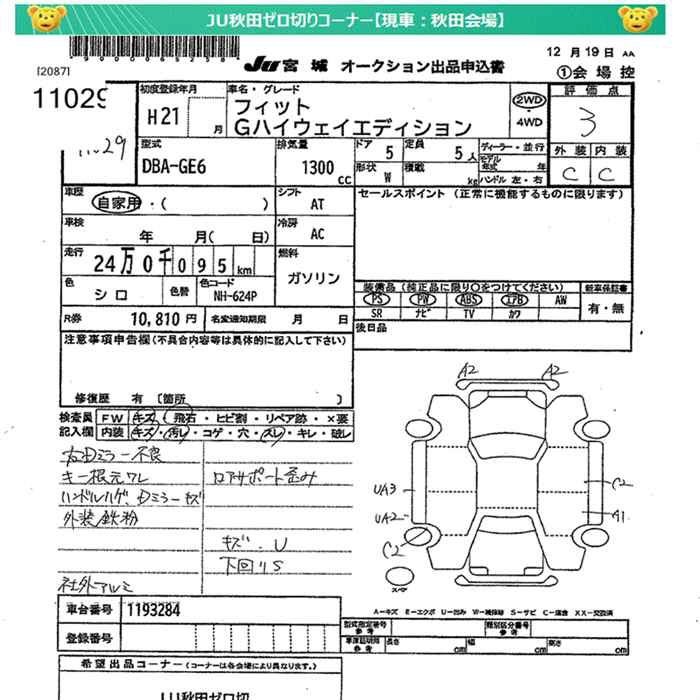 JU秋田ゼロ切りコーナー【現車：秋田会場】
[2087]
JU 宮城 オークション出品申込書
12 月 19 日 AA
①会場控
11029
1029
初度登録年月
H21
月
車名・グレード
フィット
Gハイウェイエディション
2WD
4WD
評価点
3
型式
DBA-GE6
排気量
1300 cc
ドア
5
定員
5 人
ディーラー・並行
モデル年式 年
形状
W
積載
kg
ハンドル 左・右
外装 内装
C C
車歴
自家用・( )
シフト
AT
セールスポイント（正常に機能するものに限ります）
車検
年 月( 日)
冷房
AC
走行
24万0千095km
燃料
ガソリン
色
シロ
色替
色コード
NH-624P
装備品（純正品に限り○をつけてください）
新車保証書
PS PW ABS エアB AW
有・無
SR ナビ TV カワ
R券
10,810 円
名変通知期限 月 日
後日品
注意事項申告欄（不具合内容等は具体的に記入して下さい）
修復歴 有〔箇所 〕
検査員記入欄
FW キズ・飛石・ヒビ割・リペア跡・×要
内装 キズ・汚レ・コゲ・穴・スレ・キレ・破レ
右Dミラー不良
キー根元ワレ
ロアサポート歪み
ハンドルハゲ、Dミラーキズ
外装鉄粉
キズ・U
下回りS
社外アルミ
A2 A2
UA3
C2
UA2
A1
C2
スペア
A-キズ E-エクボ U-凹み W-補修跡 S-サビ C-腐食 XX-交換済
車台番号 1193284
登録番号
型式指定番号 参考
類別区分番号 参考
車庫証明用 参考 長さ cm 幅 cm 高さ cm
希望出品コーナー（コーナーは各会場により異なります。）
JU秋田ゼロ切